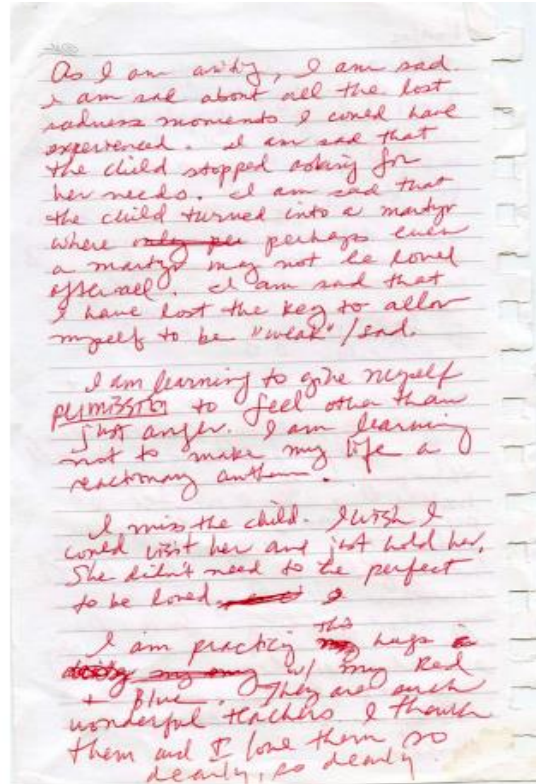 As I am writing, I am sad.
I am sad about all the lost
sadness moments I could have
experienced. I am sad that
the child stopped asking for
her needs. I am sad that
the child turned into a martyr
where only perhaps even
a martyr may not be loved
afterall. I am sad that
I have lost the key to allow
myself to be "weak"/sad.
I am learning to give myself
permission to feel other than
just anger. I am learning
not to make my life a
reactionary anthem.
I miss the child. I wish I
could visit her and just hold her.
She didn't need to be perfect
to be loved
I am practicing this hugs
w/ my Red
+ Blue. They are such
wonderful teachers I thank
them and I love them so
dearly, so dearly.